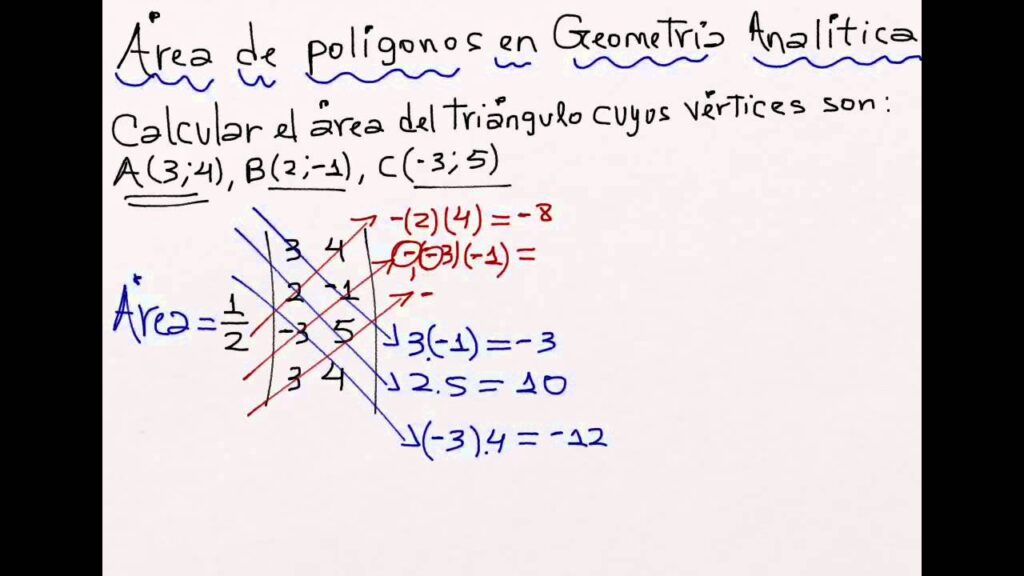 Área de polígonos en Geometria Analítica
Calcular el área del triángulo cuyos vértices son:
A(3;4), B(2;-1), C(-3;5)
Área = 1/2
3 4
2 -1
-3 5
3 4
-(2)(4) = -8
-(-3)(-1) =
-
3.(-1) = -3
2.5 = 10
(-3).4 = -12